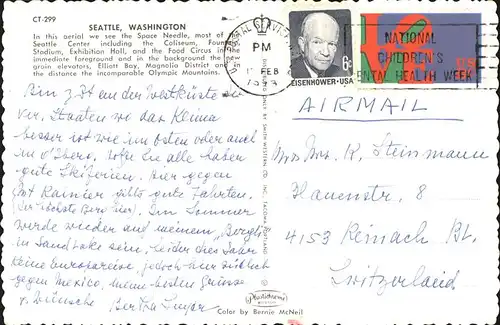 CT-299
SEATTLE, WASHINGTON
In this aerial we see the Space Needle, most of
Seattle Center including the Coliseum,
Stadium, Exhibition Hall and the Food Circus in the
immediate foreground and in the background the
grain elevators, Elliott Bay, Magnolia District and
the distance the incomparable Olympic Mountains.
PM
FEB
6¢
EISENHOWER·USA
NATIONAL
CHILDREN'S
DENTAL HEALTH WEEK
AIRMAIL
Bin z. Zt an der Westküste
Ver. Staaten wo das Klima
besser ist wie im osten oder auch
haben
gute Skiferien. Hier gegen
Mt Rainier gute Fahrten.
Im Sommer
werde wieder auf meinem "Bergli"
in sein, leider dies Jahr
keine europareise, jedoch südlich
gegen Mexico, meine besten Grüsse
u. Wünsche Bertha
Mrs. R. Steinmann
Hauenstr. 8
4153 Reinach Bl.
Switzerland
Plastichrome
Color by Bernie McNeil